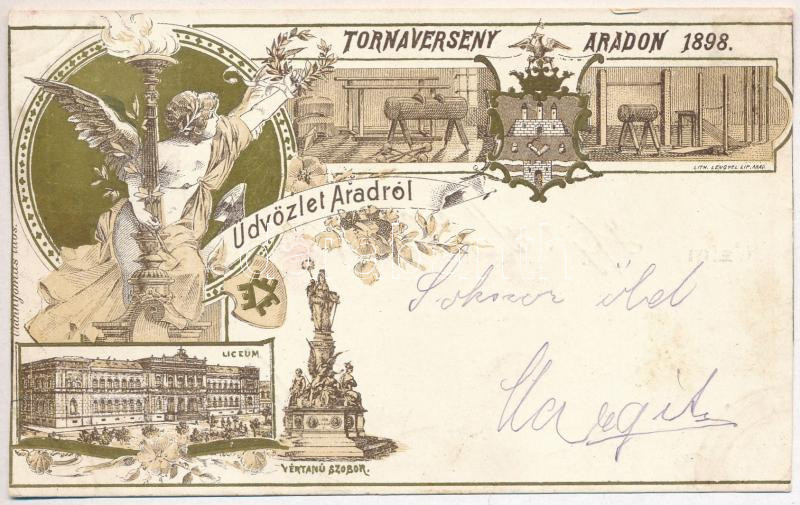 TORNAVERSENY ARADON 1898.
LITH. LENGYEL LIP. ARAD.
Üdvözlet Aradról
Utánnyomás tilos.
LICEUM
VÉRTANÚ SZOBOR.
Sokszor ölel
Margit